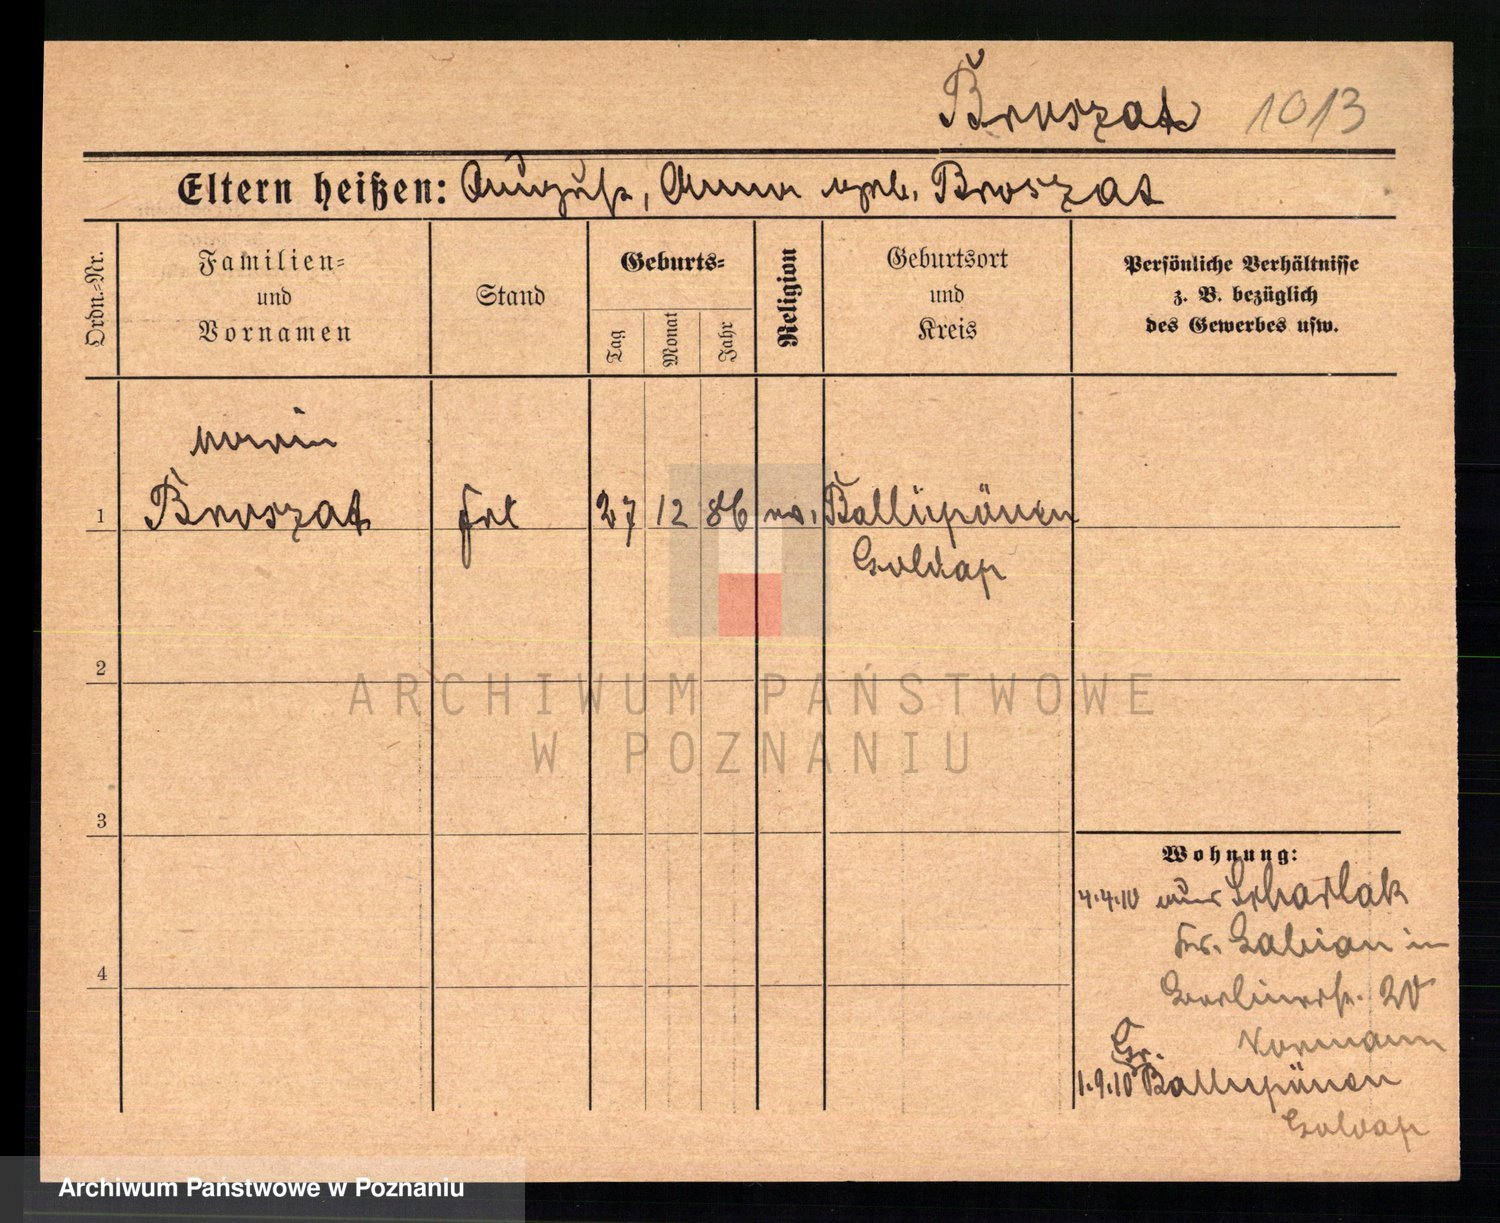 Broszat 1013
Eltern heißen: August, Anna geb. Broszat
Ordn.=Nr.
Familien=
und
Vornamen
Stand
Geburts=
Tag
Monat
Jahr
Religion
Geburtsort
und
Kreis
Persönliche Verhältnisse
z. B. bezüglich
des Gewerbes usw.
Maria
1 Broszat Frl 27 12 86 ev. Ballupönen
Goldap
2
3
4
ARCHIWUM PAŃSTWOWE
W POZNANIU
Wohnung:
4.4.10 aus Scharlak
Kr. Labiau in
Berlinerstr. 20
Kormann
Gr.
1.9.10 Ballupönen
Goldap
Archiwum Państwowe w Poznaniu